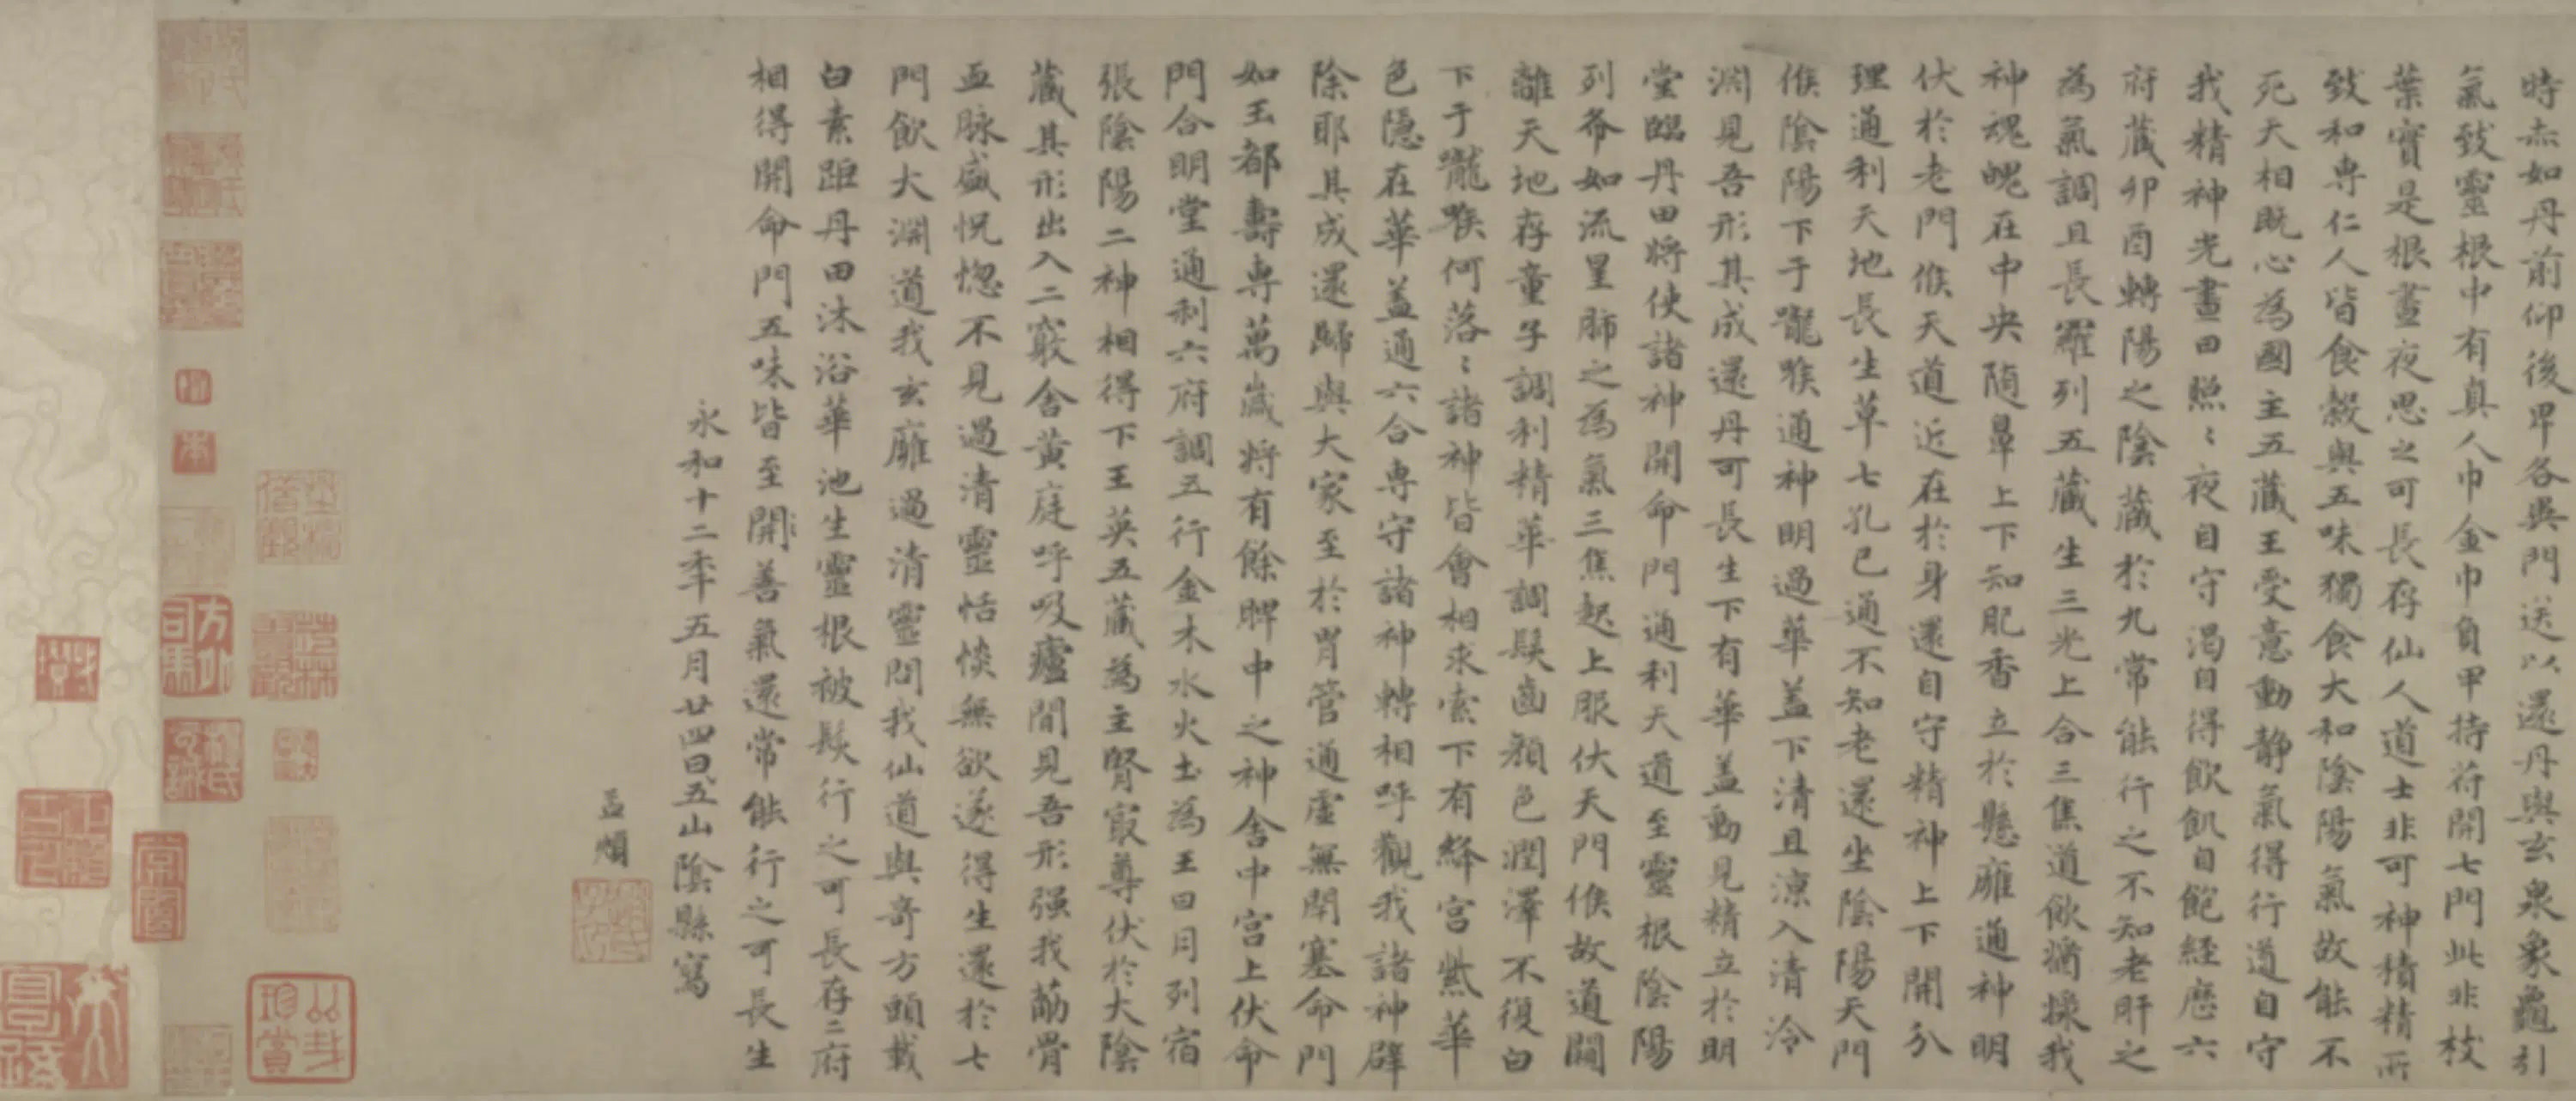 時赤如丹前仰後卑各異門送以還丹與玄泉象龜引
氣致靈根中有真人巾金巾負甲持符開七門此非枝
葉實是根晝夜思之可長存仙人道士非可神積精所
致和專仁人皆食穀與五味獨食大和陰陽氣故能不
死天相既心為國主五藏王受意動靜氣得行道自守
我精神光晝日照〻夜自守渴自得飲飢自飽經歷六
府藏卯酉轉陽之陰藏於九常能行之不知老肝之
為氣調且長羅列五藏生三光上合三焦道飲醬揉我
神魂魄在中央隨鼻上下知肥香立於懸雍通神明
伏於老門候天道近在於身還自守精神上下開分
理通利天地長生草七孔已通不知老還坐陰陽天門
候陰陽下于嚨喉通神明過華蓋下清且涼入清冷
淵見吾形其成還丹可長生下有華蓋動見精立於明
堂臨丹田將使諸神開命門通利天道至靈根陰陽
列布如流星肺之為氣三焦起上服伏天門候故道闚
離天地存童子調利精華調髮齒顏色潤澤不復白
下于嚨喉何落〻諸神皆會相求索下有絳宮紫華
色隱在華蓋通六合專守諸神轉相呼觀我諸神辟
除耶其成還歸與大家至於胃管通虛無閉塞命門
如玉都壽專萬歲將有餘脾中之神舍中宮上伏命
門合明堂通利六府調五行金木水火土為王日月列宿
張陰陽二神相得下玉英五藏為主腎最尊伏於大陰
藏其形出入二竅舍黃庭呼吸廬間見吾形強我筋骨
血脉盛怳惚不見過清靈恬惔無欲遂得生還於七
門飲大淵道我玄雍過清靈問我仙道與奇方頭載
白素距丹田沐浴華池生靈根被髮行之可長存二府
相得開命門五味皆至開善氣還常能行之可長生
永和十二年五月廿四日五山陰縣寫
孟頫
趙氏子昂
方外司馬